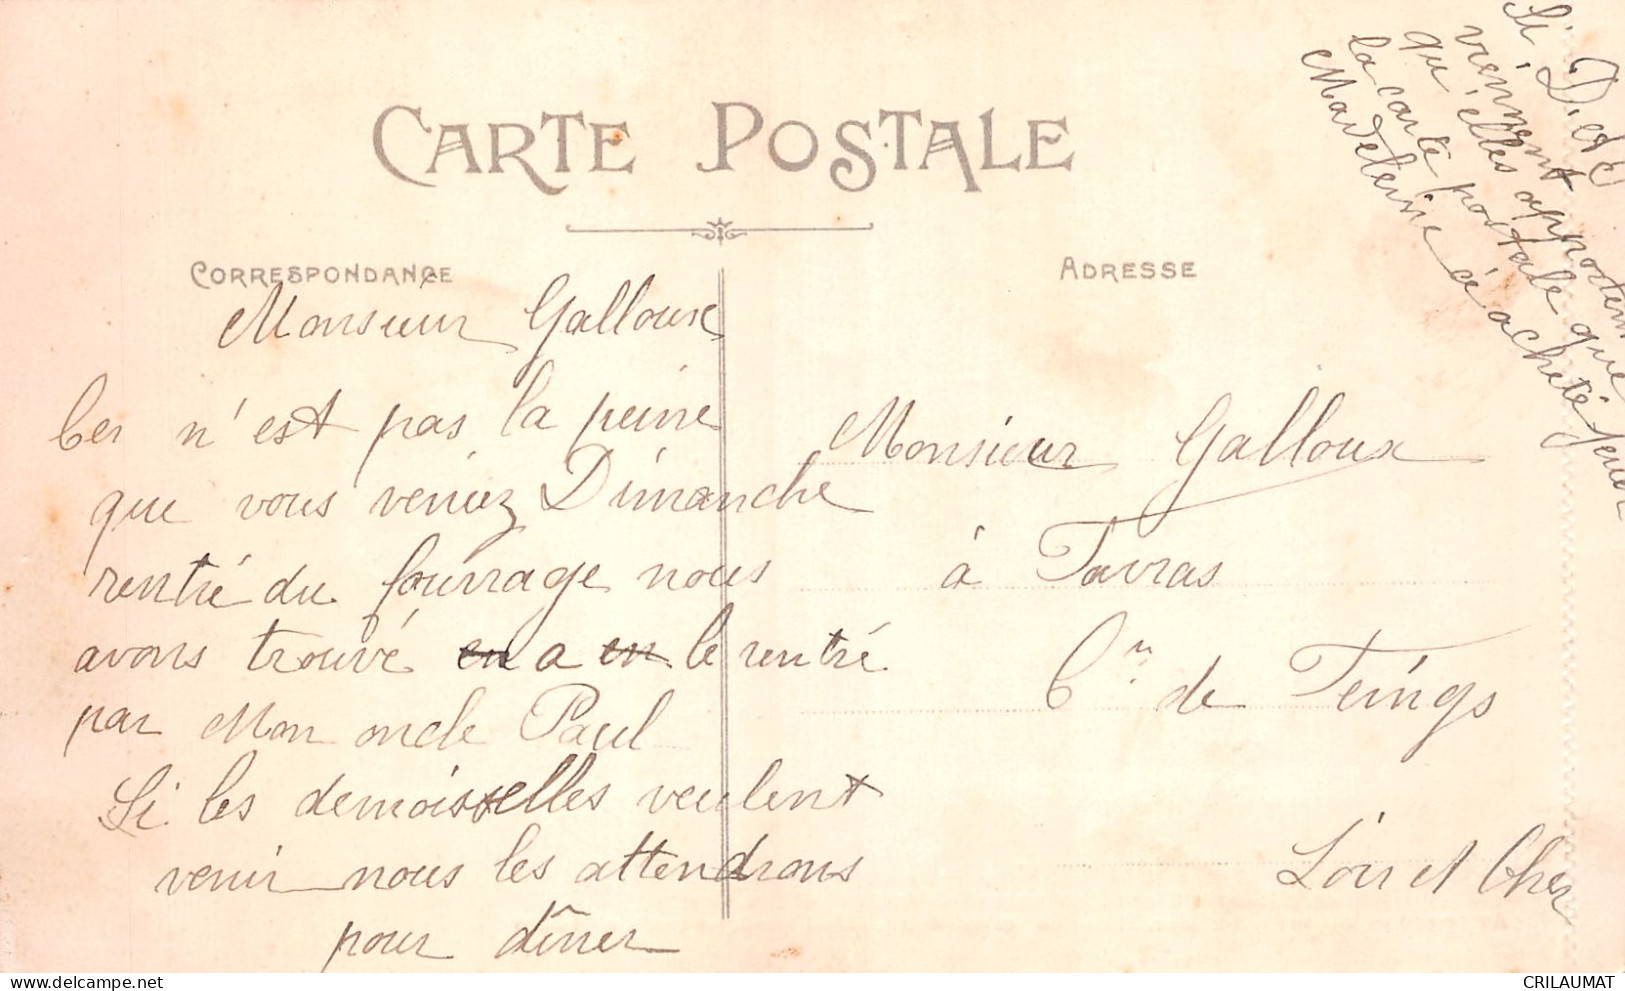 CARTE POSTALE
CORRESPONDANCE
Monsieur Galloux
Ce n'est pas la peine
que vous veniez Dimanche
rentré du fourrage nous
avons trouvé en a en le rentré
par Mon oncle Paul
Si les demoiselles veulent
venir nous les attendrons
pour dîner
ADRESSE
Monsieur Galloux
à Favras
Cⁿ de Feings
Loir et Cher
Si D. et C
viennent
qu'elles apportent
la carte postale que
Madeleine a acheté
CRILAUMAT